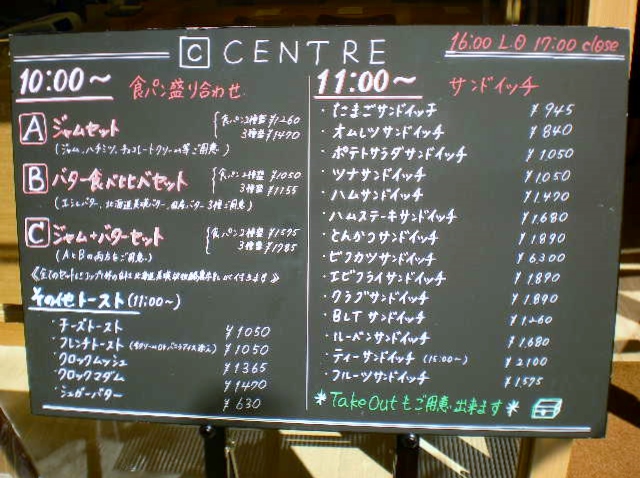 C CENTRE
16:00 L.O 17:00 close
10:00～ 食パン盛り合わせ
A ジャムセット
食パン2種盛 ¥1260
3種盛 ¥1470
(ジャム、ハチミツ、チョコレートクリーム等ご用意)
B バター食べ比べセット
食パン2種盛 ¥1050
3種盛 ¥1155
(エシレバター、北海道美瑛バター、国産バター3種ご用意)
C ジャム+バターセット
食パン2種盛 ¥1575
3種盛 ¥1785
(AとBの両方をご用意)
《全てのセットにコップ1杯の
北海道美瑛
付きます》
その他トースト (11:00～)
・チーズトースト ¥1050
・フレンチトースト ¥1050
・クロックムッシュ ¥1365
・クロックマダム ¥1470
・シュガーバター ¥630
11:00～ サンドイッチ
・たまごサンドイッチ ¥945
・オムレツサンドイッチ ¥840
・ポテトサラダサンドイッチ ¥1,050
・ツナサンドイッチ ¥1050
・ハムサンドイッチ ¥1,470
・ハムステーキサンドイッチ ¥1,680
・とんかつサンドイッチ ¥1890
・ビフカツサンドイッチ ¥6300
・エビフライサンドイッチ ¥1,890
・クラブサンドイッチ ¥1,890
・BLTサンドイッチ ¥1,260
・ルーベンサンドイッチ ¥1,680
・ティーサンドイッチ (15:00～) ¥2100
・フルーツサンドイッチ ¥1,575
＊Take Outもご用意出来ます＊